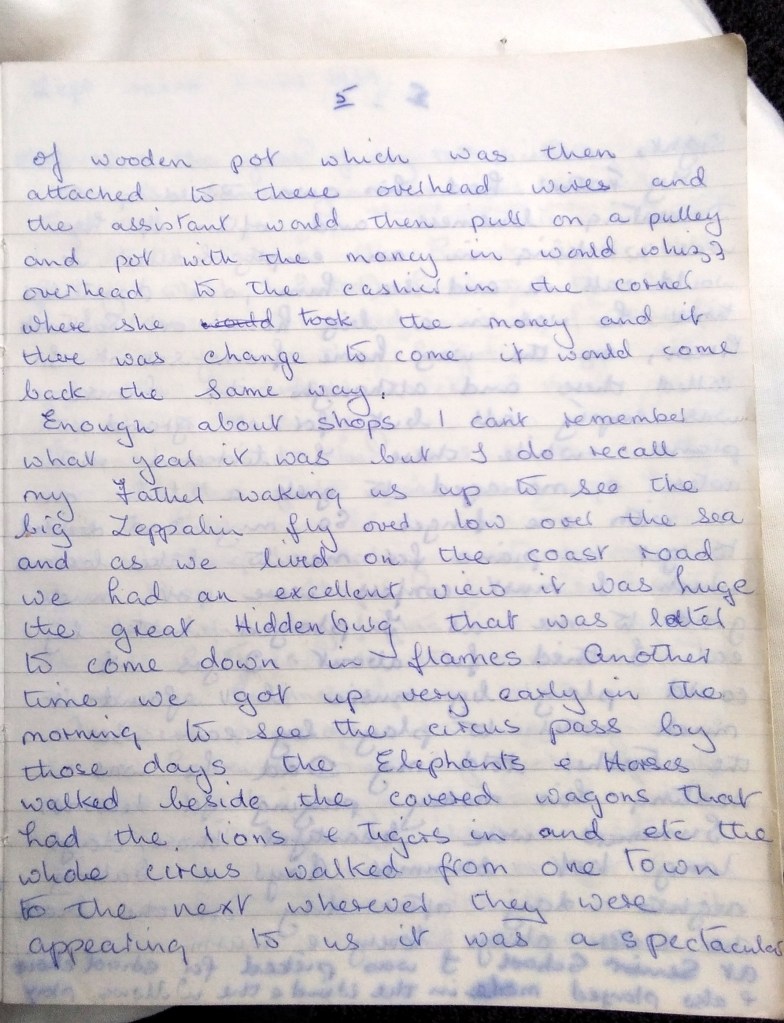 5
of wooden pot which was then
attached to these overhead wires and
the assistant would then pull on a pulley
and pot with the money in would whizz
overhead to the cashier in the corner
where she would took the money and if
there was change to come it would come
back the same way.
Enough about shops I can't remember
what year it was but I do recall
my Father waking us up to see the
big Zeppalin fly over low over the sea
and as we lived on the coast road
we had an excellent view it was huge
the great Hiddenburg that was later
to come down in flames. Another
time we got up very early in the
morning to see the circus pass by
those days the Elephants & Horses
walked beside the covered wagons that
had the lions & Tigers in and etc the
whole circus walked from one Town
to the next wherever they were
appearing to us it was a spectacular